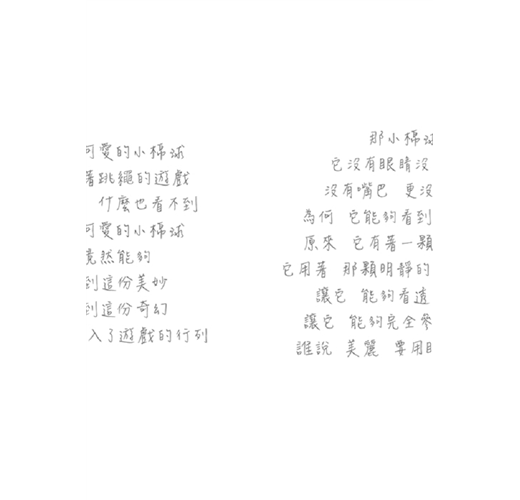 可愛的小棉球
著跳繩的遊戲
什麼也看不到
可愛的小棉球
竟然能夠
到這份美妙
到這份奇幻
入了遊戲的行列
那小棉球
它沒有眼睛沒
沒有嘴巴 更沒
為何 它能夠看到
原來 它有著一顆
它用著 那顆明靜的
讓它 能夠看遠
讓它 能夠完全參
誰說 美麗 要用